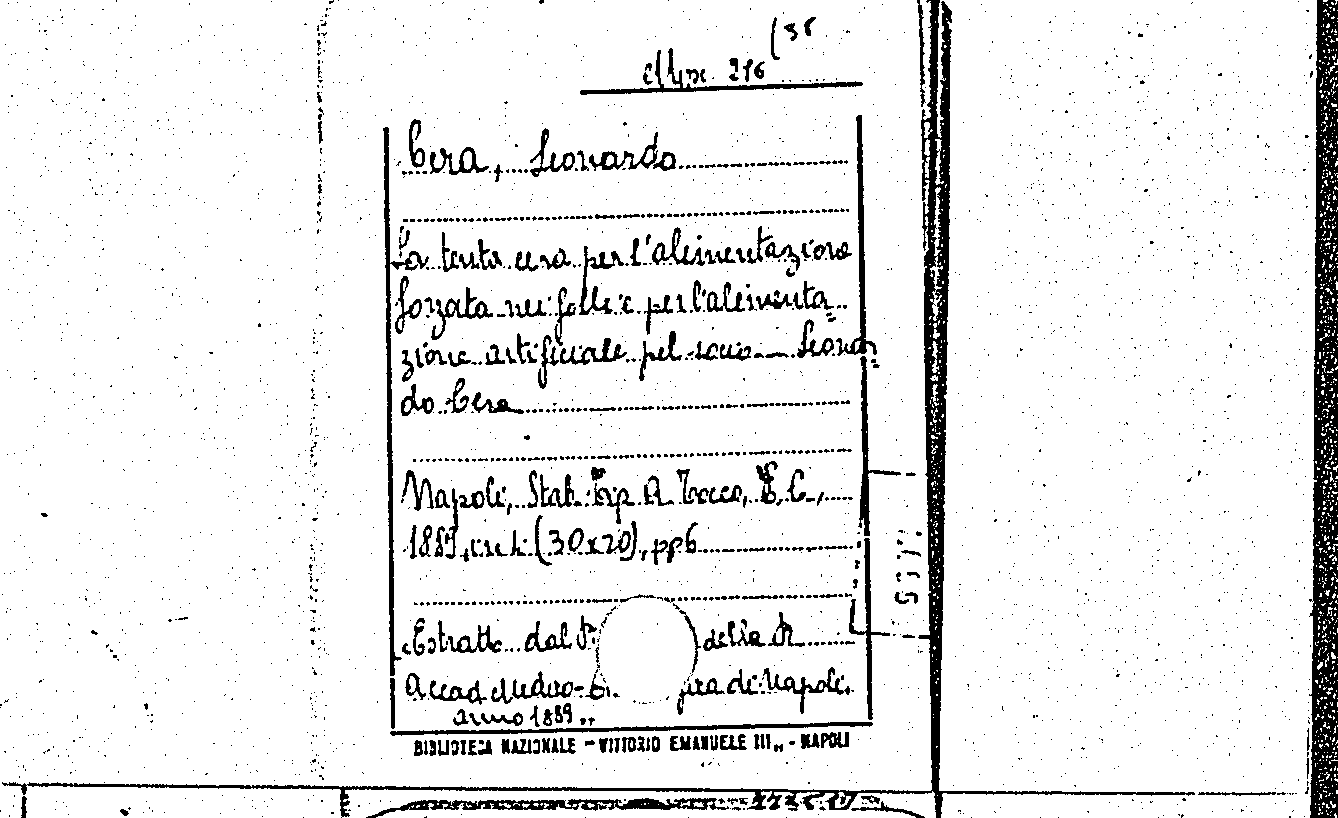 (35
Misc. 216
Cera, Leonardo
La tenta cera per l'alimentazione
forzata nei folli e per l'alimenta=
zione artificiale pel socio Leonar=
do Cera
Napoli, Stab. Tip. A. Tocco, E. C.,
1889, in-4 (30x20), pp 6
Estratto dal della R.
Accad. Medico- di Napoli.
anno 1889
BIBLIOTECA NAZIONALE - VITTORIO EMANUELE III„ - NAPOLI